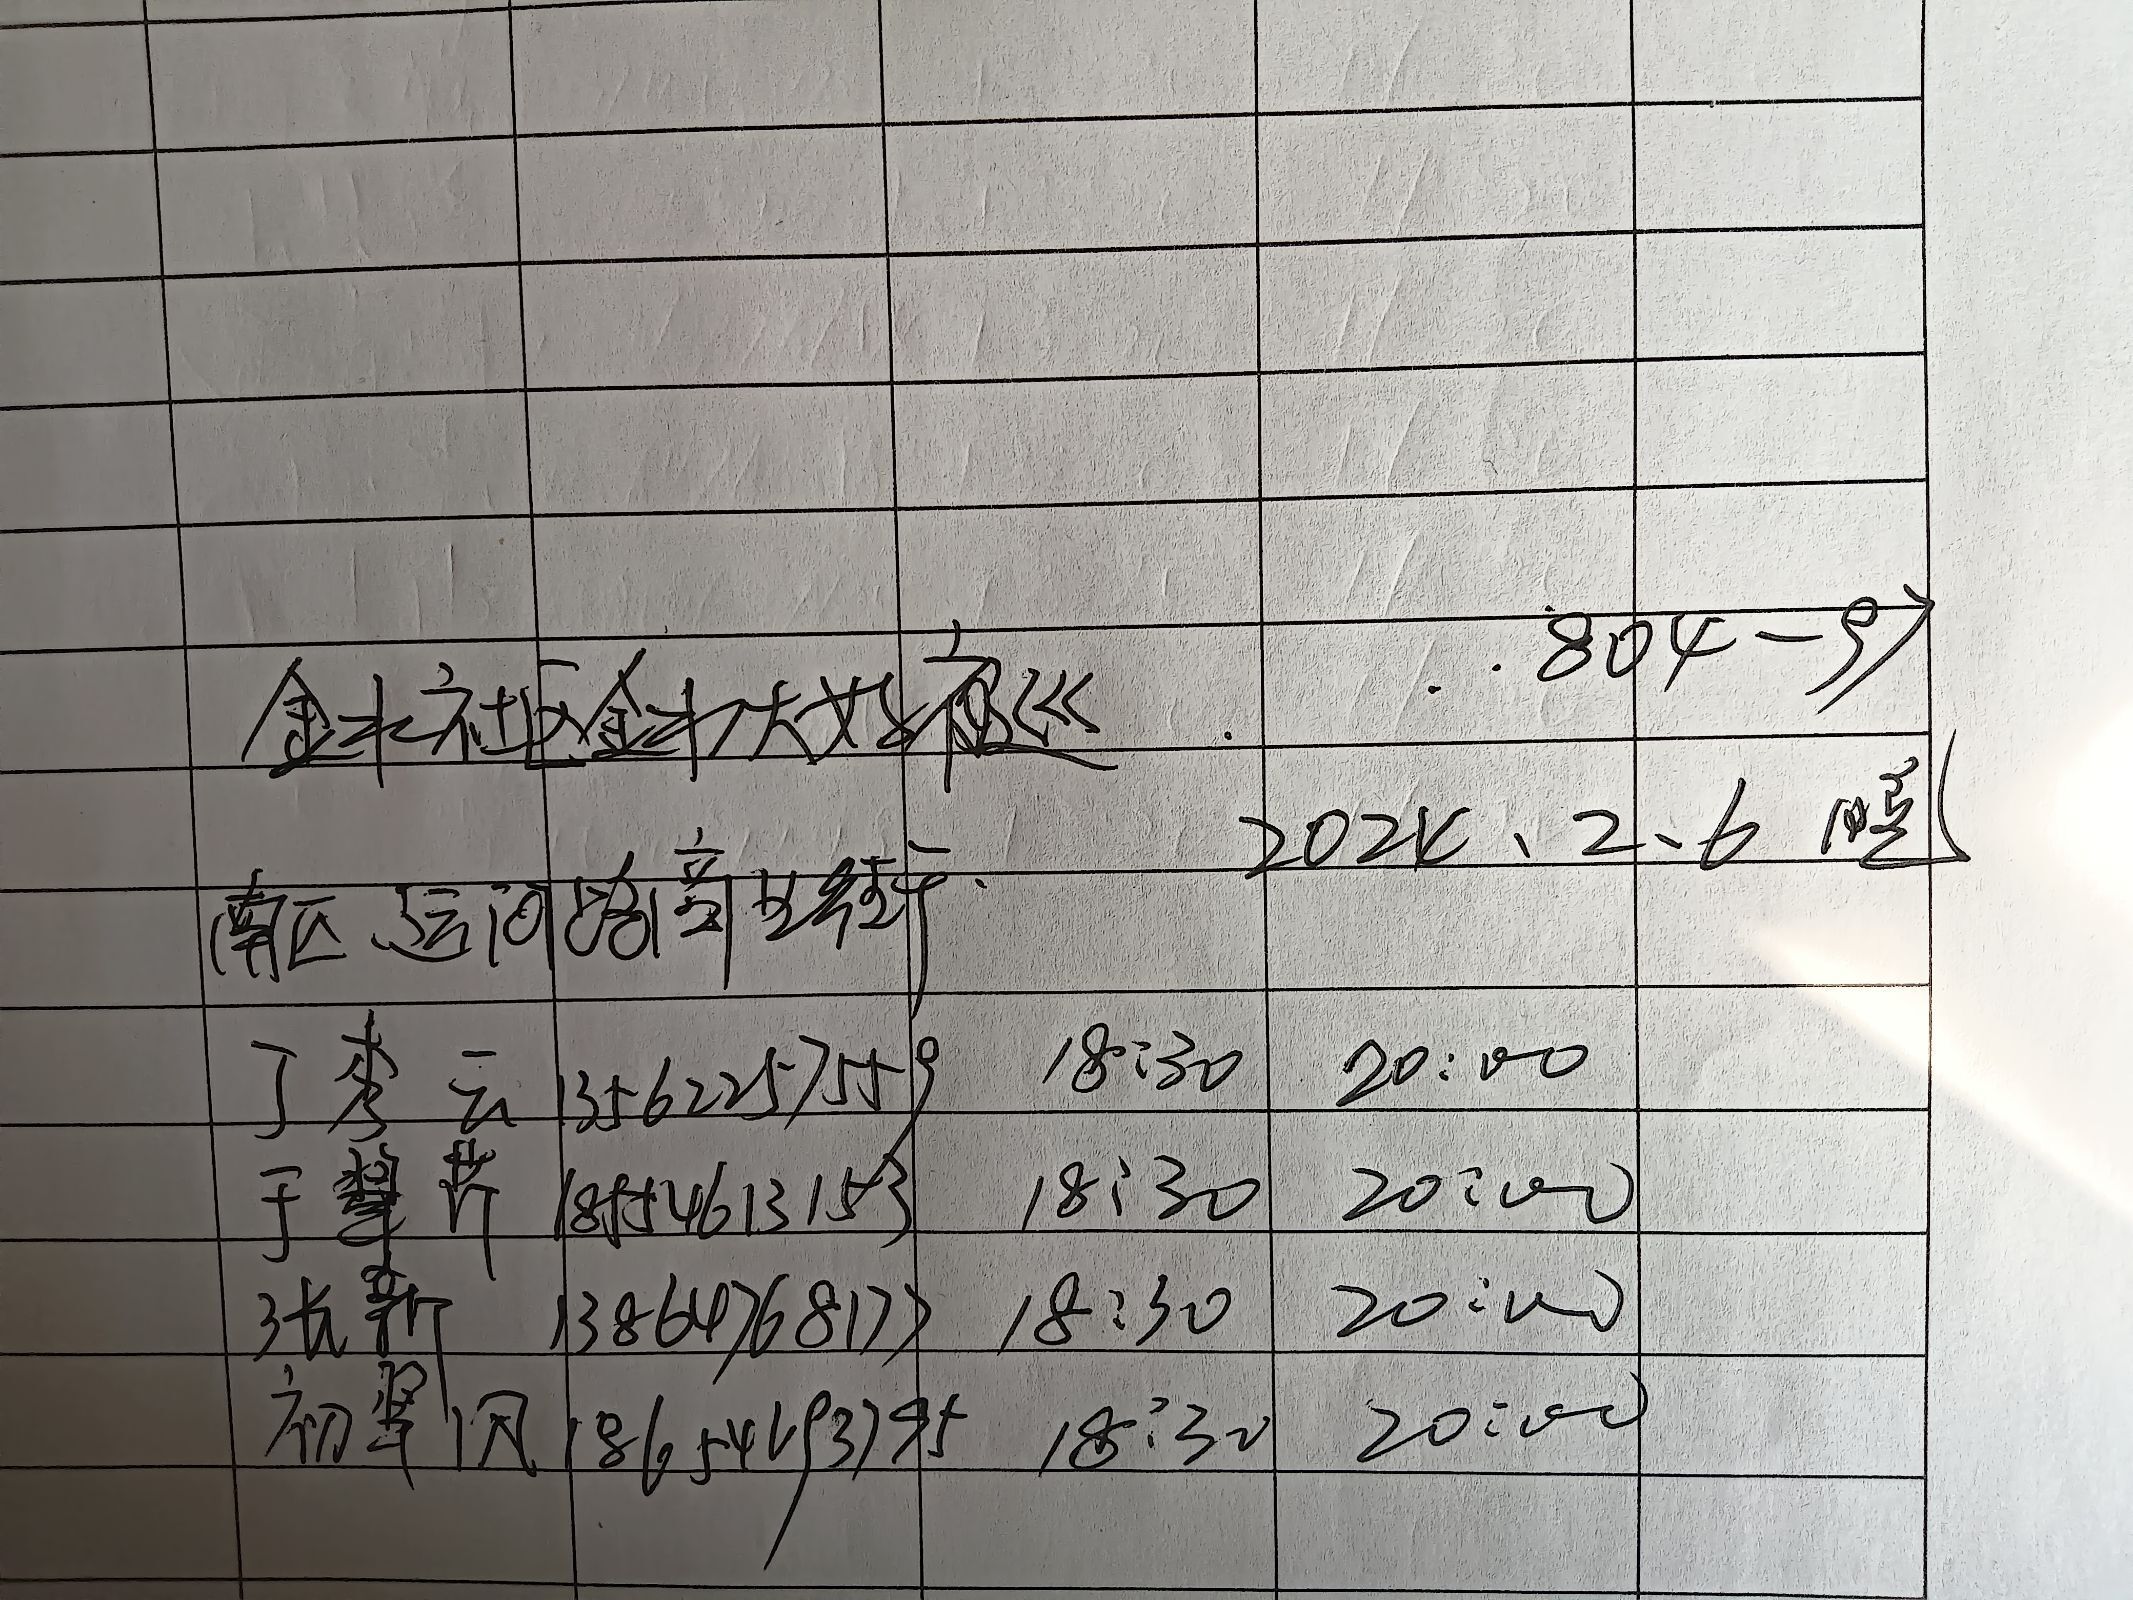 804-97
金水社区金水大妈夜巡
2024、2、6 晚
南区 运河路商
丁秀云 13562257559 18:30 20:00
于翠芳 18554613153 18:30 20:00
张新 13864768177 18:30 20:00
初翠 18654693795 18:30 20:00